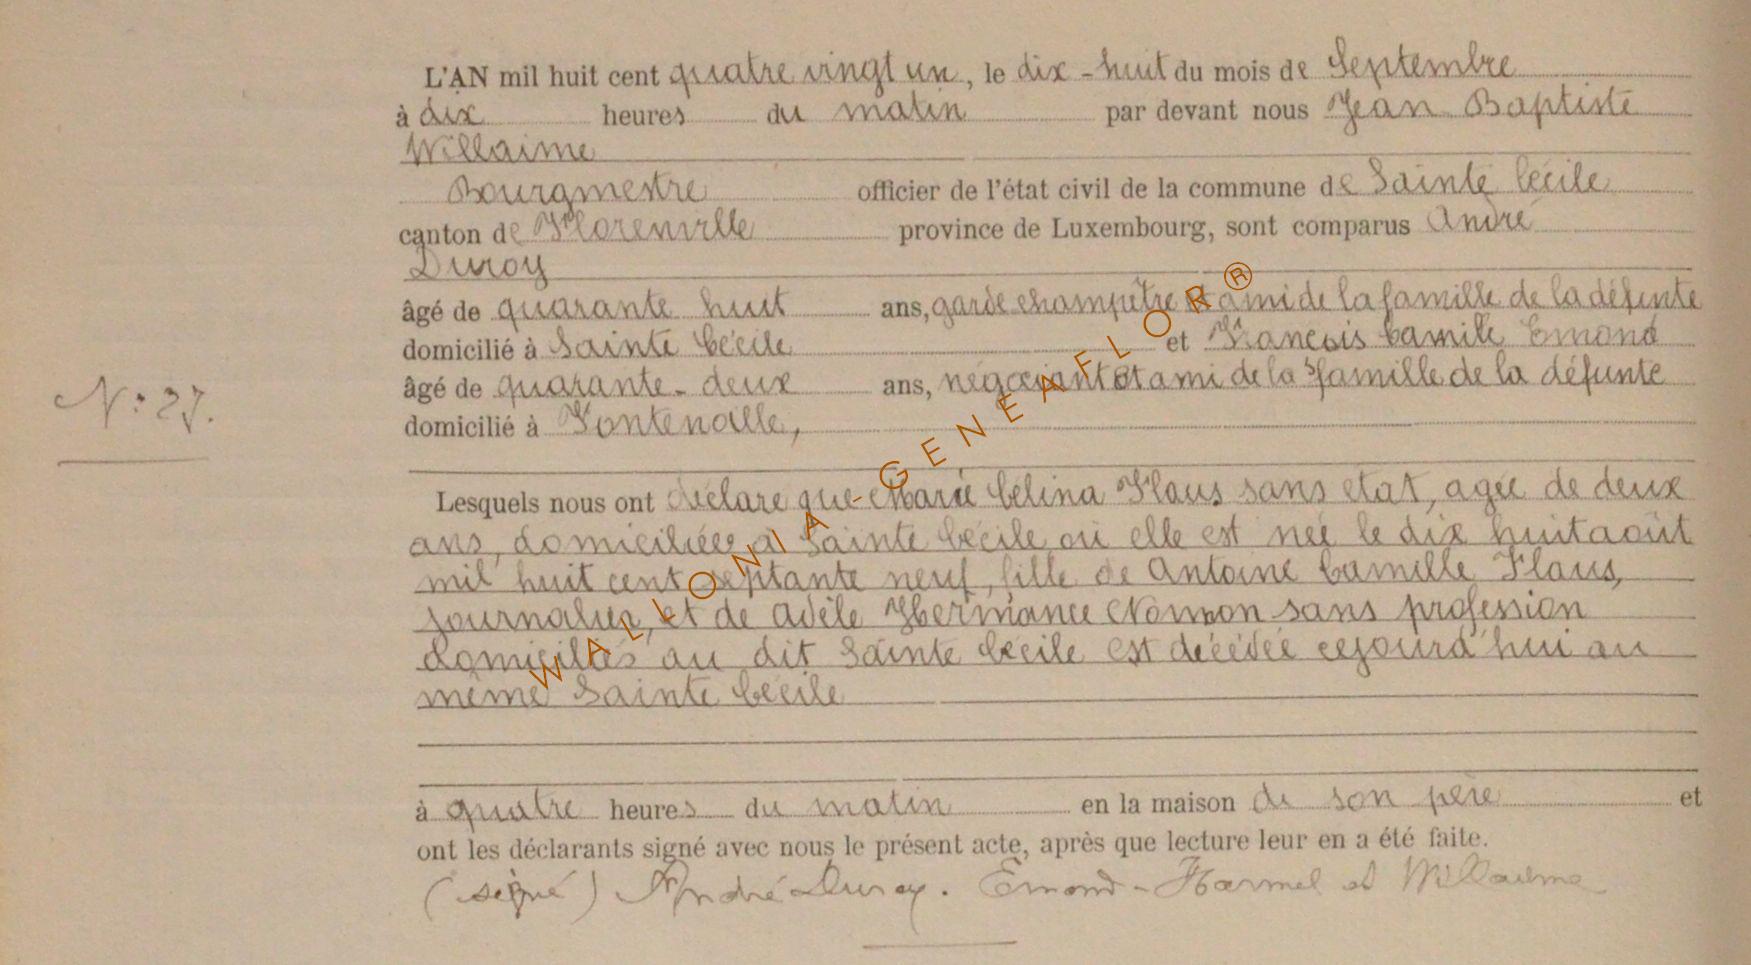 L'AN mil huit cent quatre vingt un, le dix-huit du mois de Septembre
à dix heures du matin par devant nous Jean Baptiste
Willaime
Bourgmestre officier de l'état civil de la commune de Sainte Cécile
canton de Florenville province de Luxembourg, sont comparus André
Duroy
âgé de quarante huit ans, garde champêtre et ami de la famille de la défunte
domicilié à Sainte Cécile et François Camille Emond
âgé de quarante-deux ans, négociant et ami de la famille de la défunte
N° 27.
domicilié à Fontenoille,
Lesquels nous ont déclaré que Marie Célina Flaus sans état, agée de deux
ans, domiciliée à Sainte Cécile où elle est née le dix huit août
mil huit cent septante neuf, fille de Antoine Camille Flaus,
journalier, et de Adèle Hermance sans profession
domiciliés au dit Sainte Cécile est décédée cejourd'hui au
même Sainte Cécile
à quatre heures du matin en la maison de son père et
ont les déclarants signé avec nous le présent acte, après que lecture leur en a été faite.
(signé) André Duroy. Emond-Harmel et Willaime
WALLONIA-GENEAFLOR®